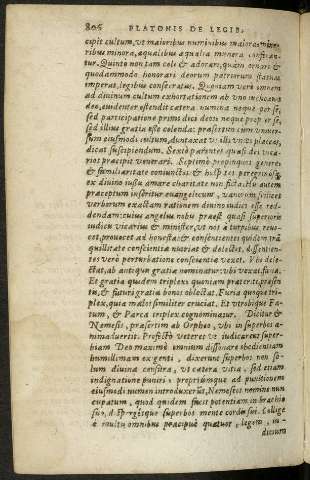 806 PLATONIS DE LEGIB.
cipit cultum, vt maioribus numinibus maiora: mino-
ribus minora, æqualibus æqualia munera
tur. Quinto non tam coli & adorari, quàm ornari &
quodammodo honorari deorum patriorum statuas
imperat, legibus consecratas. Quoniam verò
ad diuinum cultum exhortationem ab vno
deo, euidenter ostendit cætera numina neque per se,
sed participatione primi dici deos: neque pro se,
sed illius gratia esse colenda: præsertim cum vniuer-
sum eiusmodi cultum, duntaxat vt illi vni placeat,
dicat suscipiendum. Sexto parentes quasi dei vica-
rios præcipit venerari. Septimò propinquos generis
& familiaritate coniunctos & hospites peregrinos
ex diuino iussu amare charitate non ficta. Hic autem
præceptum inseritur euangelicum, vanorum scilicet
verborum exactam rationem diuino iudici esse red-
dendam: cuius angelus nobis præest quasi superioris
iudicis vicarius & minister, vt nos à turpibus reuo-
cet, prouocet ad honesta, & consentientes quidem trã
quillitate conscientiæ nutriat & delectet, dissentien-
tes verò perturbatione conscientiæ vexet. Vbi dele-
ctat, ab antiquis gratia nominatur: vbi vexat, furia.
Et gratia quidem triplex quoniam præterita, præsen
tia, & futuri gratia bonos oblectat. Furia quoque tri-
plex, quia malos similiter cruciat. Et vtrobique Fa-
tum, & Parca triplex cognominatur. Dicitur &
Nemesis, præsertim ab Orpheo, vbi in superbos a-
nimaduertit. Profectò veteres
biam Deo maximè omnium dissonare obedientiam
humillimam exigenti, dixerunt superbos non so-
lum diuina censura, vt cætera vitia, sed etiam
indignatione puniri: propriumque ad punitionem
eiusmodi numen introduxerunt, Nemeseos nomine nun
cupatum, quod quidem fecit potentiam in brachio
suo, dispergitque superbos mente cordis sui. Collige
à multis omnibus præcipuè quatuor, legem, iu-
dicium